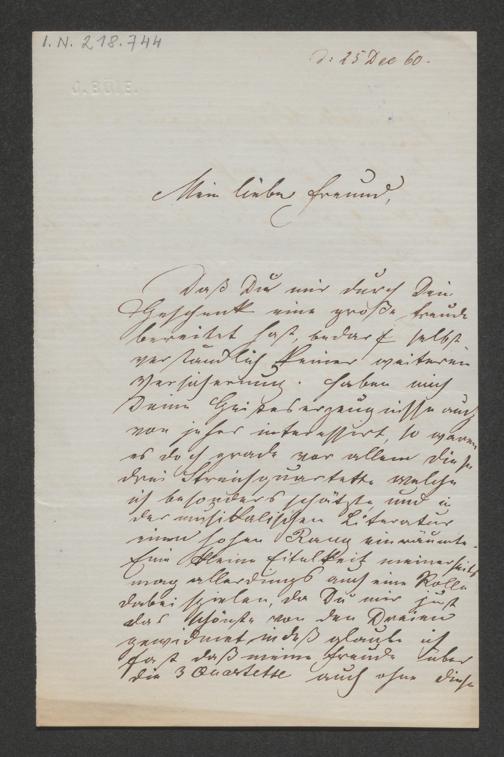 I.N. 218.744
d: 25 Dec 60.
J. BÖIE.
Mein lieber Freund,
Daß Du mir durch Dein
Geschenk eine große Freude
bereitet hast, bedarf selbst
verständlich keiner weiteren
Versicherung. Haben mich
Deine Geisteserzeugnisse auch
von jeher interessirt, so waren
es doch grade vor allem diese
drei Streichquartette welche
ich besonders schätzte und in
der musikalischen Literatur
einen hohen Rang einräumte.
Eine kleine Eitelkeit meinerseits
mag allerdings auch eine Rolle
dabei spielen, da Du mir just
das schönste von den Dreien
gewidmet, indeß glaube ich
fast daß meine Freude über
die 3 Quartette auch ohne diese